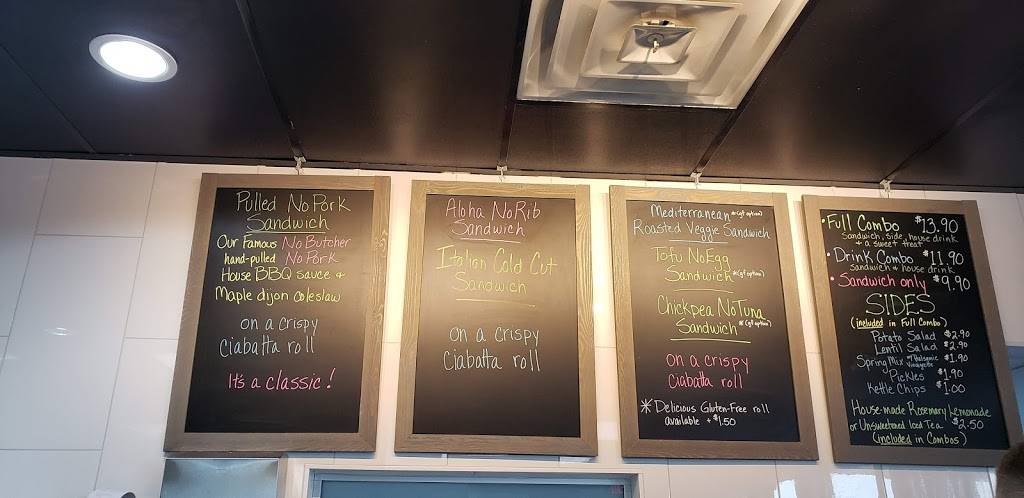 Pulled No Pork
Sandwich
Our Famous No Butcher
hand-pulled No Pork
House BBQ sauce +
Maple dijon coleslaw
on a crispy
Ciabatta roll
It's a classic!
Aloha No Rib
Sandwich
Italian Cold Cut
Sandwich
on a crispy
Ciabatta roll
Mediterranean *(gf option)
Roasted Veggie Sandwich
Tofu No Egg
Sandwich *(gf option)
Chickpea No Tuna
Sandwich *(gf option)
on a crispy
Ciabatta roll
* Delicious Gluten-Free roll
available + $1.50
• Full Combo $13.90
Sandwich, side, house drink
+ a sweet treat
• Drink Combo $11.90
Sandwich + house drink
• Sandwich only $9.90
SIDES
(included in Full Combo)
Potato Salad $2.90
Lentil Salad $2.90
Spring Mix w/ Balsamic Vinaigrette $1.90
Pickles $1.90
Kettle Chips $1.00
House-made Rosemary Lemonade
or Unsweetened Iced Tea $2.50
(included in Combos)